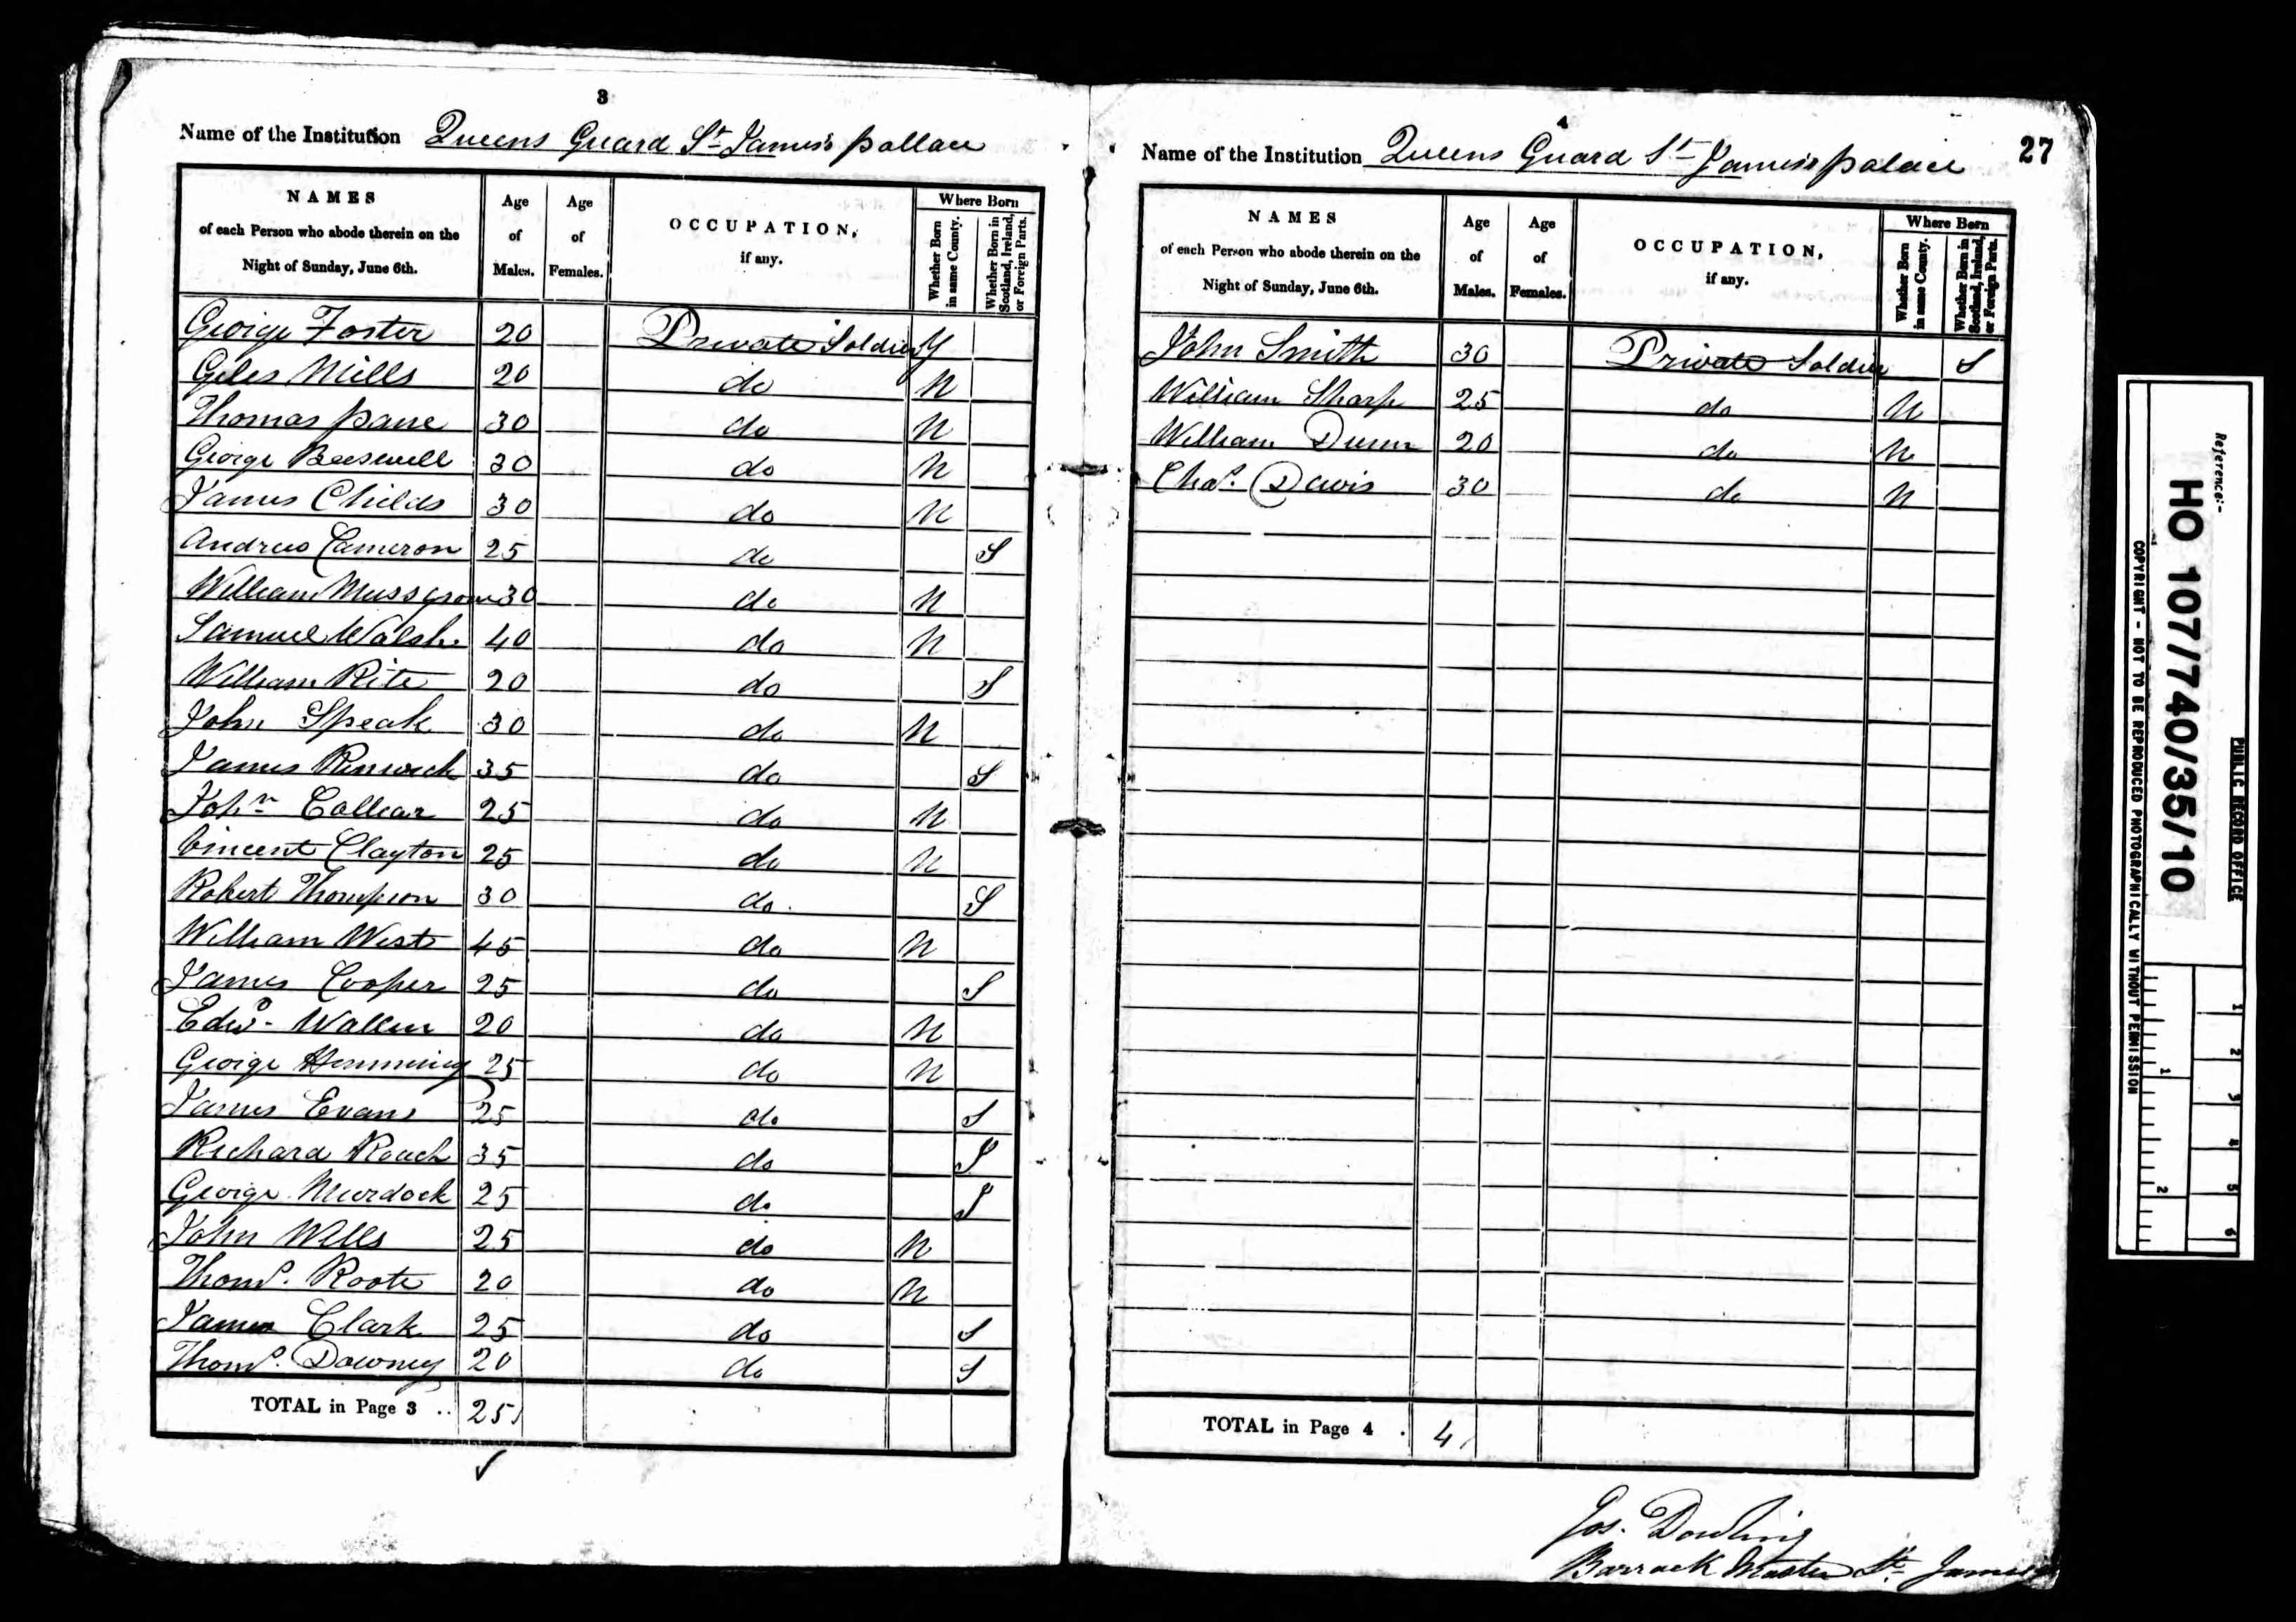 3
Name of the Institution Queens Guard St James's pallace
NAMES of each Person who abode therein on the Night of Sunday, June 6th.
Age of Males.
Age of Females.
OCCUPATION, if any.
Where Born
Whether Born in same County.
Whether Born in Scotland, Ireland, or Foreign Parts.
George Foster 20 Private Soldier Y
Giles Mills 20 do N
Thomas pane 30 do N
George Beeswell 30 do N
James Childs 30 do N
Andrew Cameron 25 do S
William Mussgrove 30 do N
Samuel Walsh 40 do N
William Rite 20 do S
John Speak 30 do N
James Renwick 35 do S
John Collear 25 do N
Vincent Clayton 25 do N
Robert Thompson 30 do S
William West 45 do N
James Cooper 25 do S
Edwd. 20 do N
George Hemming 25 do N
James Evans 25 do S
Richard Roach 35 do S
George Murdock 25 do S
John Wells 25 do N
Thoms. Roote 20 do N
James Clark 25 do S
Thoms. Downey 20 do S
TOTAL in Page 3 .. 25
4
27
Name of the Institution Queens Guard St James's palace
NAMES of each Person who abode therein on the Night of Sunday, June 6th.
Age of Males.
Age of Females.
OCCUPATION, if any.
Where Born
Whether Born in same County.
Whether Born in Scotland, Ireland, or Foreign Parts.
John Smith 30 Private Soldier S
William Sharp 25 do N
William Dunn 20 do N
Chas. Davis 30 do N
TOTAL in Page 4 . 4
Jos. Dowling
Barrack Master St. James
Reference:-
HO 107/740/35/10
PUBLIC RECORD OFFICE
COPYRIGHT - NOT TO BE REPRODUCED PHOTOGRAPHICALLY WITHOUT PERMISSION
1 2 3 4 5 6
1 2